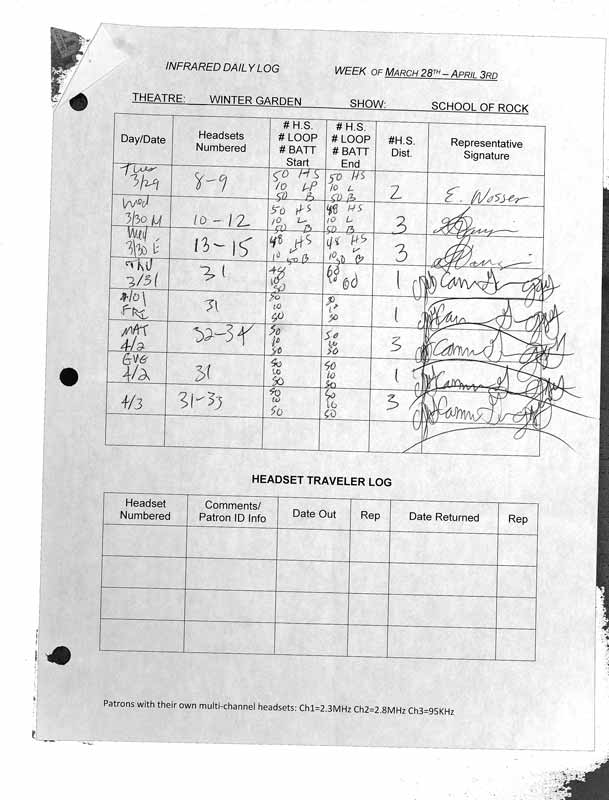 INFRARED DAILY LOG WEEK OF MARCH 28TH – APRIL 3RD
THEATRE: WINTER GARDEN SHOW: SCHOOL OF ROCK
Day/Date Headsets Numbered # H.S. # LOOP # BATT Start # H.S. # LOOP # BATT End #H.S. Dist. Representative Signature
Tues 3/29 8-9 50 HS 10 LP 50 B 50 HS 10 L 50 B 2 E. Nosser
Wed 3/30 M 10-12 50 HS 10 L 50 B 48 HS 10 L 50 B 3
Wed 3/30 E 13-15 48 HS 10 L 50 B 48 HS 10 L 50 B 3
3/31 31 1
4/01 FRI 31 50 10 50 50 10 50 1
MAT 4/2 32-34 50 10 50 50 10 50 3
EVG 4/2 31 50 10 50 50 10 50 1
4/3 31-33 50 10 50 50 10 50 3
HEADSET TRAVELER LOG
Headset Numbered Comments/ Patron ID Info Date Out Rep Date Returned Rep
Patrons with their own multi-channel headsets: Ch1=2.3MHz Ch2=2.8MHz Ch3=95KHz